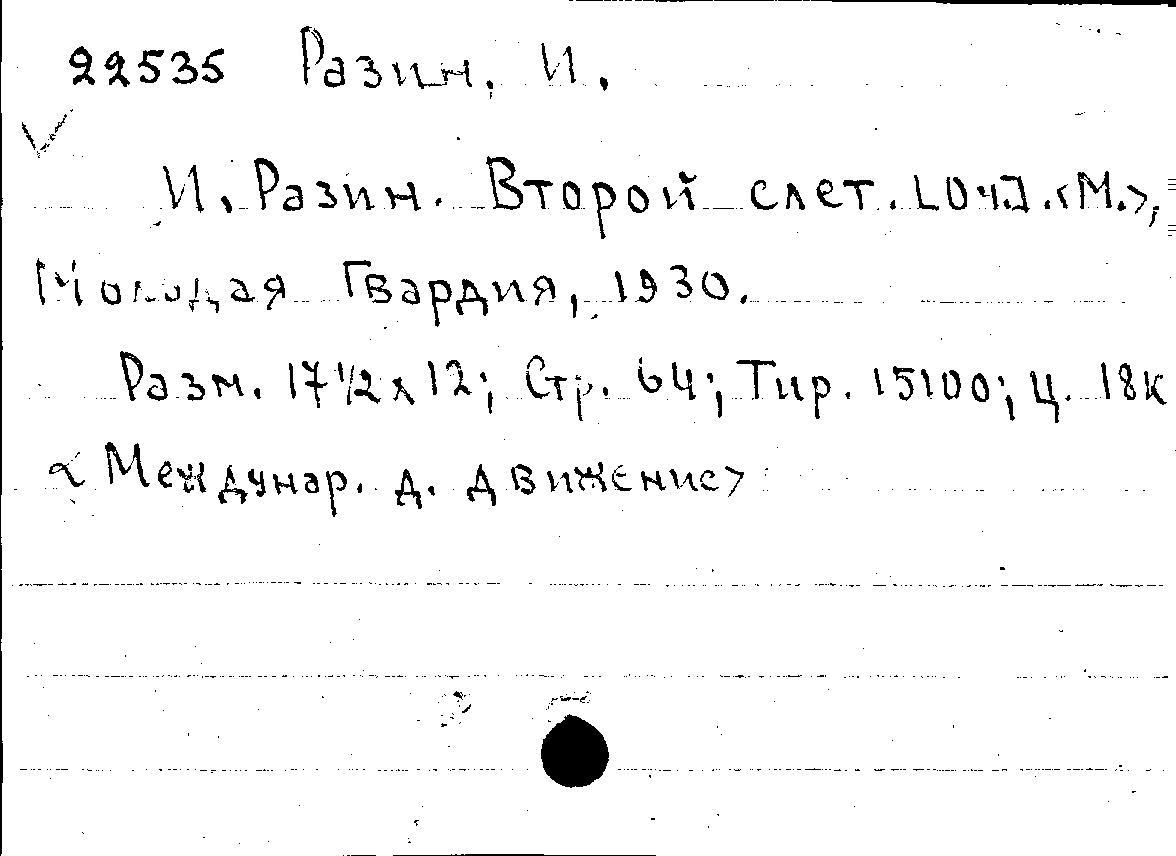 22535 Разин, И.
И. Разин. Второй слет. [Оч.]. <М.>,
Молодая Гвардия, 1930.
Разм. 17 1/2 x 12; Стр. 64; Тир. 15100; Ц. 18к
<Междунар. д. движение>